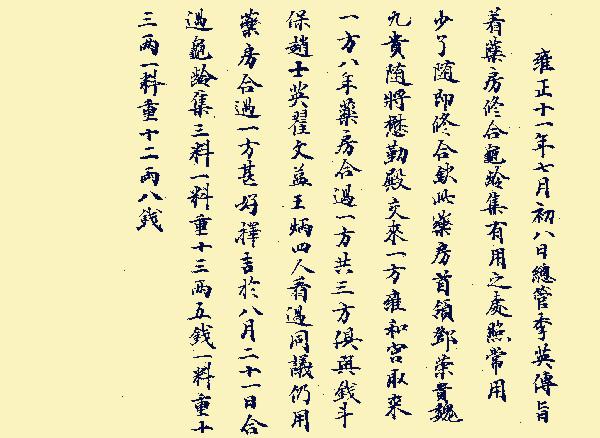 雍正十一年七月初八日總管李英傳旨
着藥房修合龜齡集有用之處照常用
少了随即修合欽此藥房首領鄧榮貴魏
九貴随將懋勤殿交來一方雍和宮取來
一方八年藥房合過一方共三方俱與錢斗
保趙士英翟文益王炳四人看過同議仍用
藥房合過一方甚好擇吉於八月二十一日合
過龜齡集三料一料重十三兩五錢一料重十
三兩一料重十二兩八錢